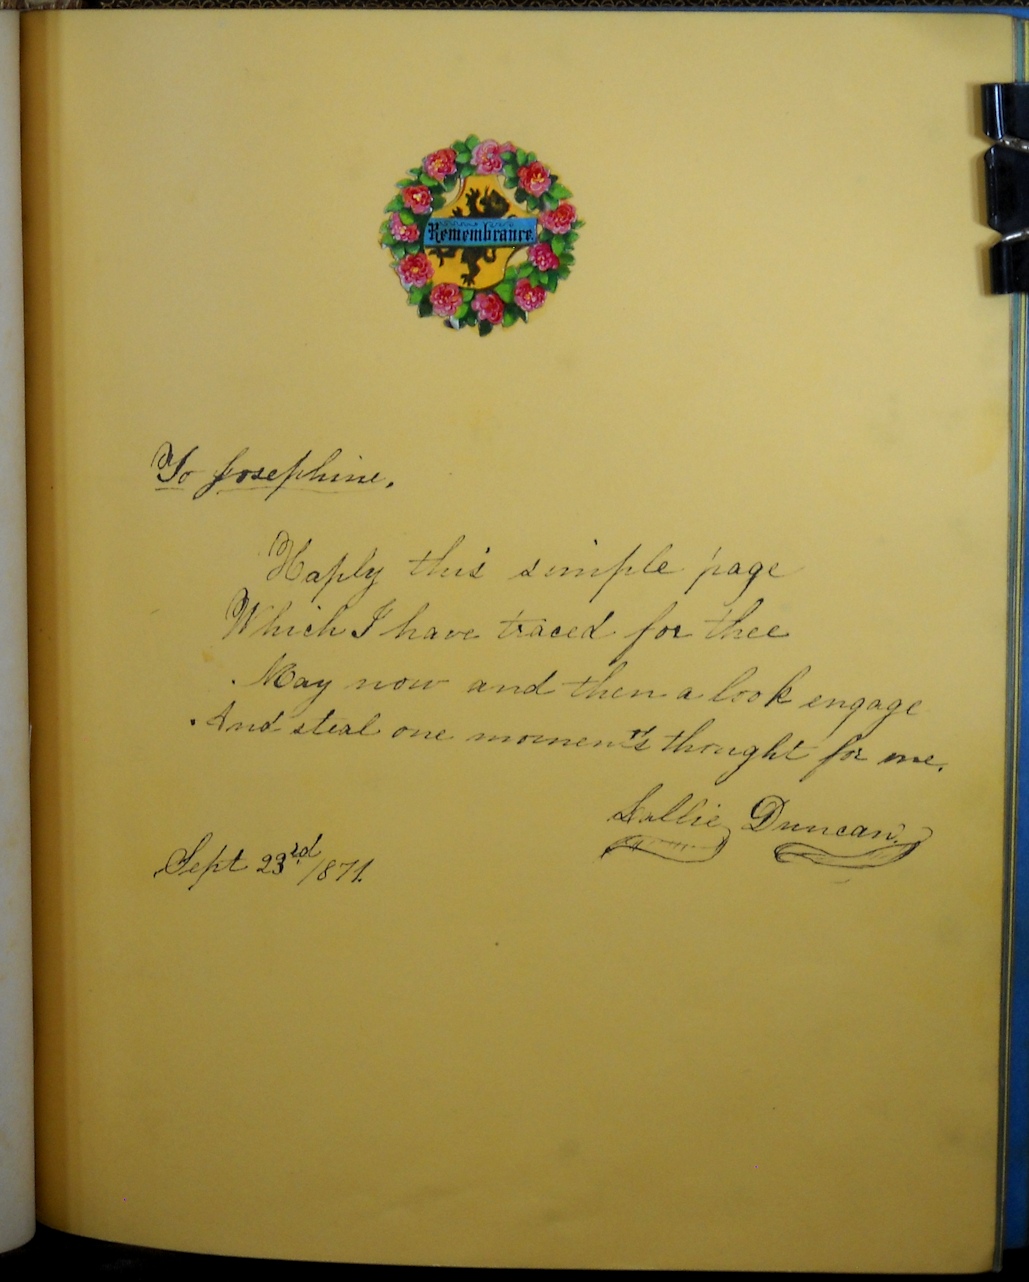 Remembrance.
To Josephine.
Haply this simple page
Which I have traced for thee
May now and then a look engage
And steal one moment's thought for me.
Sallie Duncan.
Sept 23rd/871.